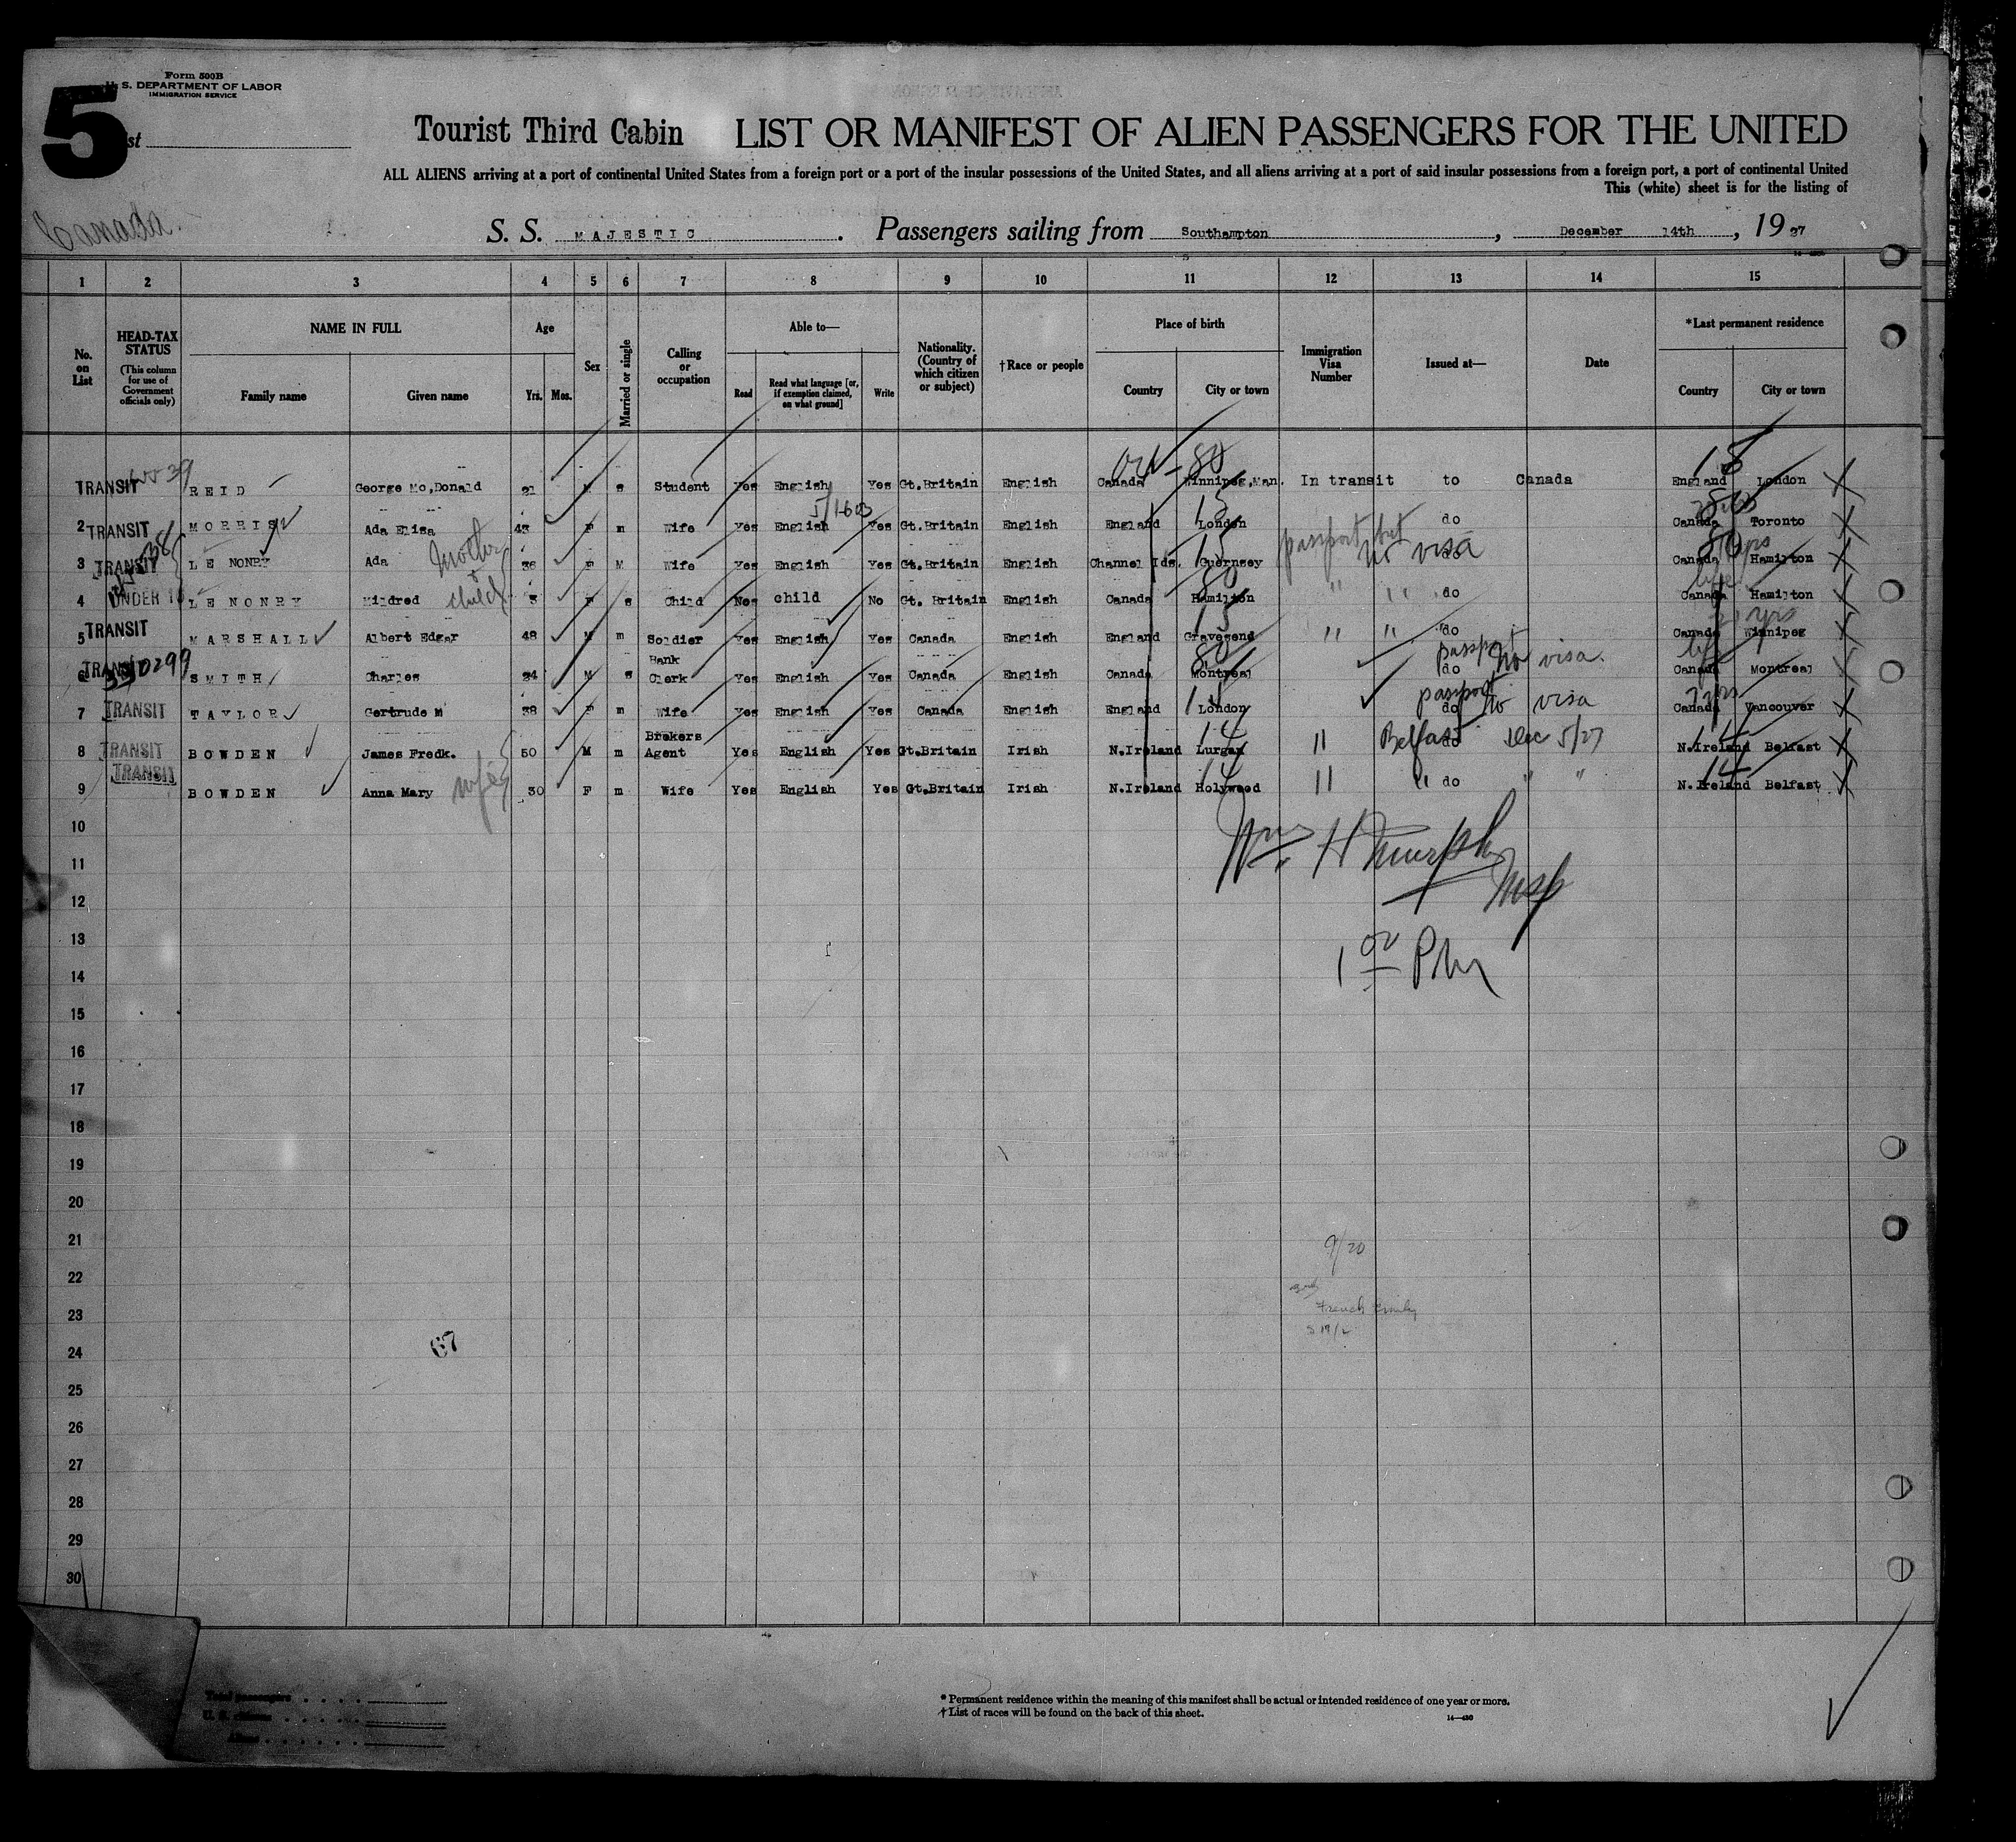 Form 500B
U. S. DEPARTMENT OF LABOR
IMMIGRATION SERVICE
5
st
Tourist Third Cabin LIST OR MANIFEST OF ALIEN PASSENGERS FOR THE UNITED
ALL ALIENS arriving at a port of continental United States from a foreign port or a port of the insular possessions of the United States, and all aliens arriving at a port of said insular possessions from a foreign port, a port of continental United
This (white) sheet is for the listing of
Canada.
S. S. MAJESTIC. Passengers sailing from Southampton, December 14th, 19 27
1 2 3 4 5 6 7 8 9 10 11 12 13 14 15
No. on List
HEAD-TAX STATUS (This column for use of Government officials only)
NAME IN FULL Family name Given name
Age Yrs. Mos.
Sex
Married or single
Calling or occupation
Able to— Read Read what language [or, if exemption claimed, on what ground] Write
Nationality. (Country of which citizen or subject)
†Race or people
Place of birth Country City or town
Immigration Visa Number
Issued at—
Date
*Last permanent residence Country City or town
TRANSIT REID George Mc,Donald 21 M s Student Yes English Yes Gt.Britain English Canada Winnipeg,Man. In transit to Canada England London
2 TRANSIT MORRIS Ada Elisa 43 F m Wife Yes English Yes Gt.Britain English England London do Canada Toronto
3 TRANSIT LE NONRY Ada Mother 36 F M Wife Yes English Yes Gt.Britain English Channel Ids. Guernsey passport but no visa do Canada Hamilton
4 UNDER 16 LE NONRY Mildred child 5 F s Child No child No Gt. Britain English Canada Hamilton " " do Canada Hamilton
5 TRANSIT MARSHALL Albert Edgar 48 M m Soldier Yes English Yes Canada English England Gravesend " " do Canada Winnipeg
6 TRANSIT SMITH Charles 24 M s Bank Clerk Yes English Yes Canada English Canada Montreal passport no visa. do Canada Montreal
7 TRANSIT TAYLOR Gertrude M 38 F m Wife Yes English Yes Canada English England London passport no visa do Canada Vancouver
8 TRANSIT BOWDEN James Fredk. 50 M m Brokers Agent Yes English Yes Gt.Britain Irish N.Ireland Lurgan " Belfast do Dec 5/27 N.Ireland Belfast
9 TRANSIT BOWDEN Anna Mary wife 30 F m Wife Yes English Yes Gt.Britain Irish N.Ireland Holywood " " do " " N.Ireland Belfast
10
Wm H Murphy
11
Insp
12
13
1 00 PM
14
15
16
17
18
19
20
21
9/20
22
23
French Emily
24
67
25
26
27
28
29
30
Total passengers
U. S. citizens
Aliens
* Permanent residence within the meaning of this manifest shall be actual or intended residence of one year or more.
† List of races will be found on the back of this sheet.